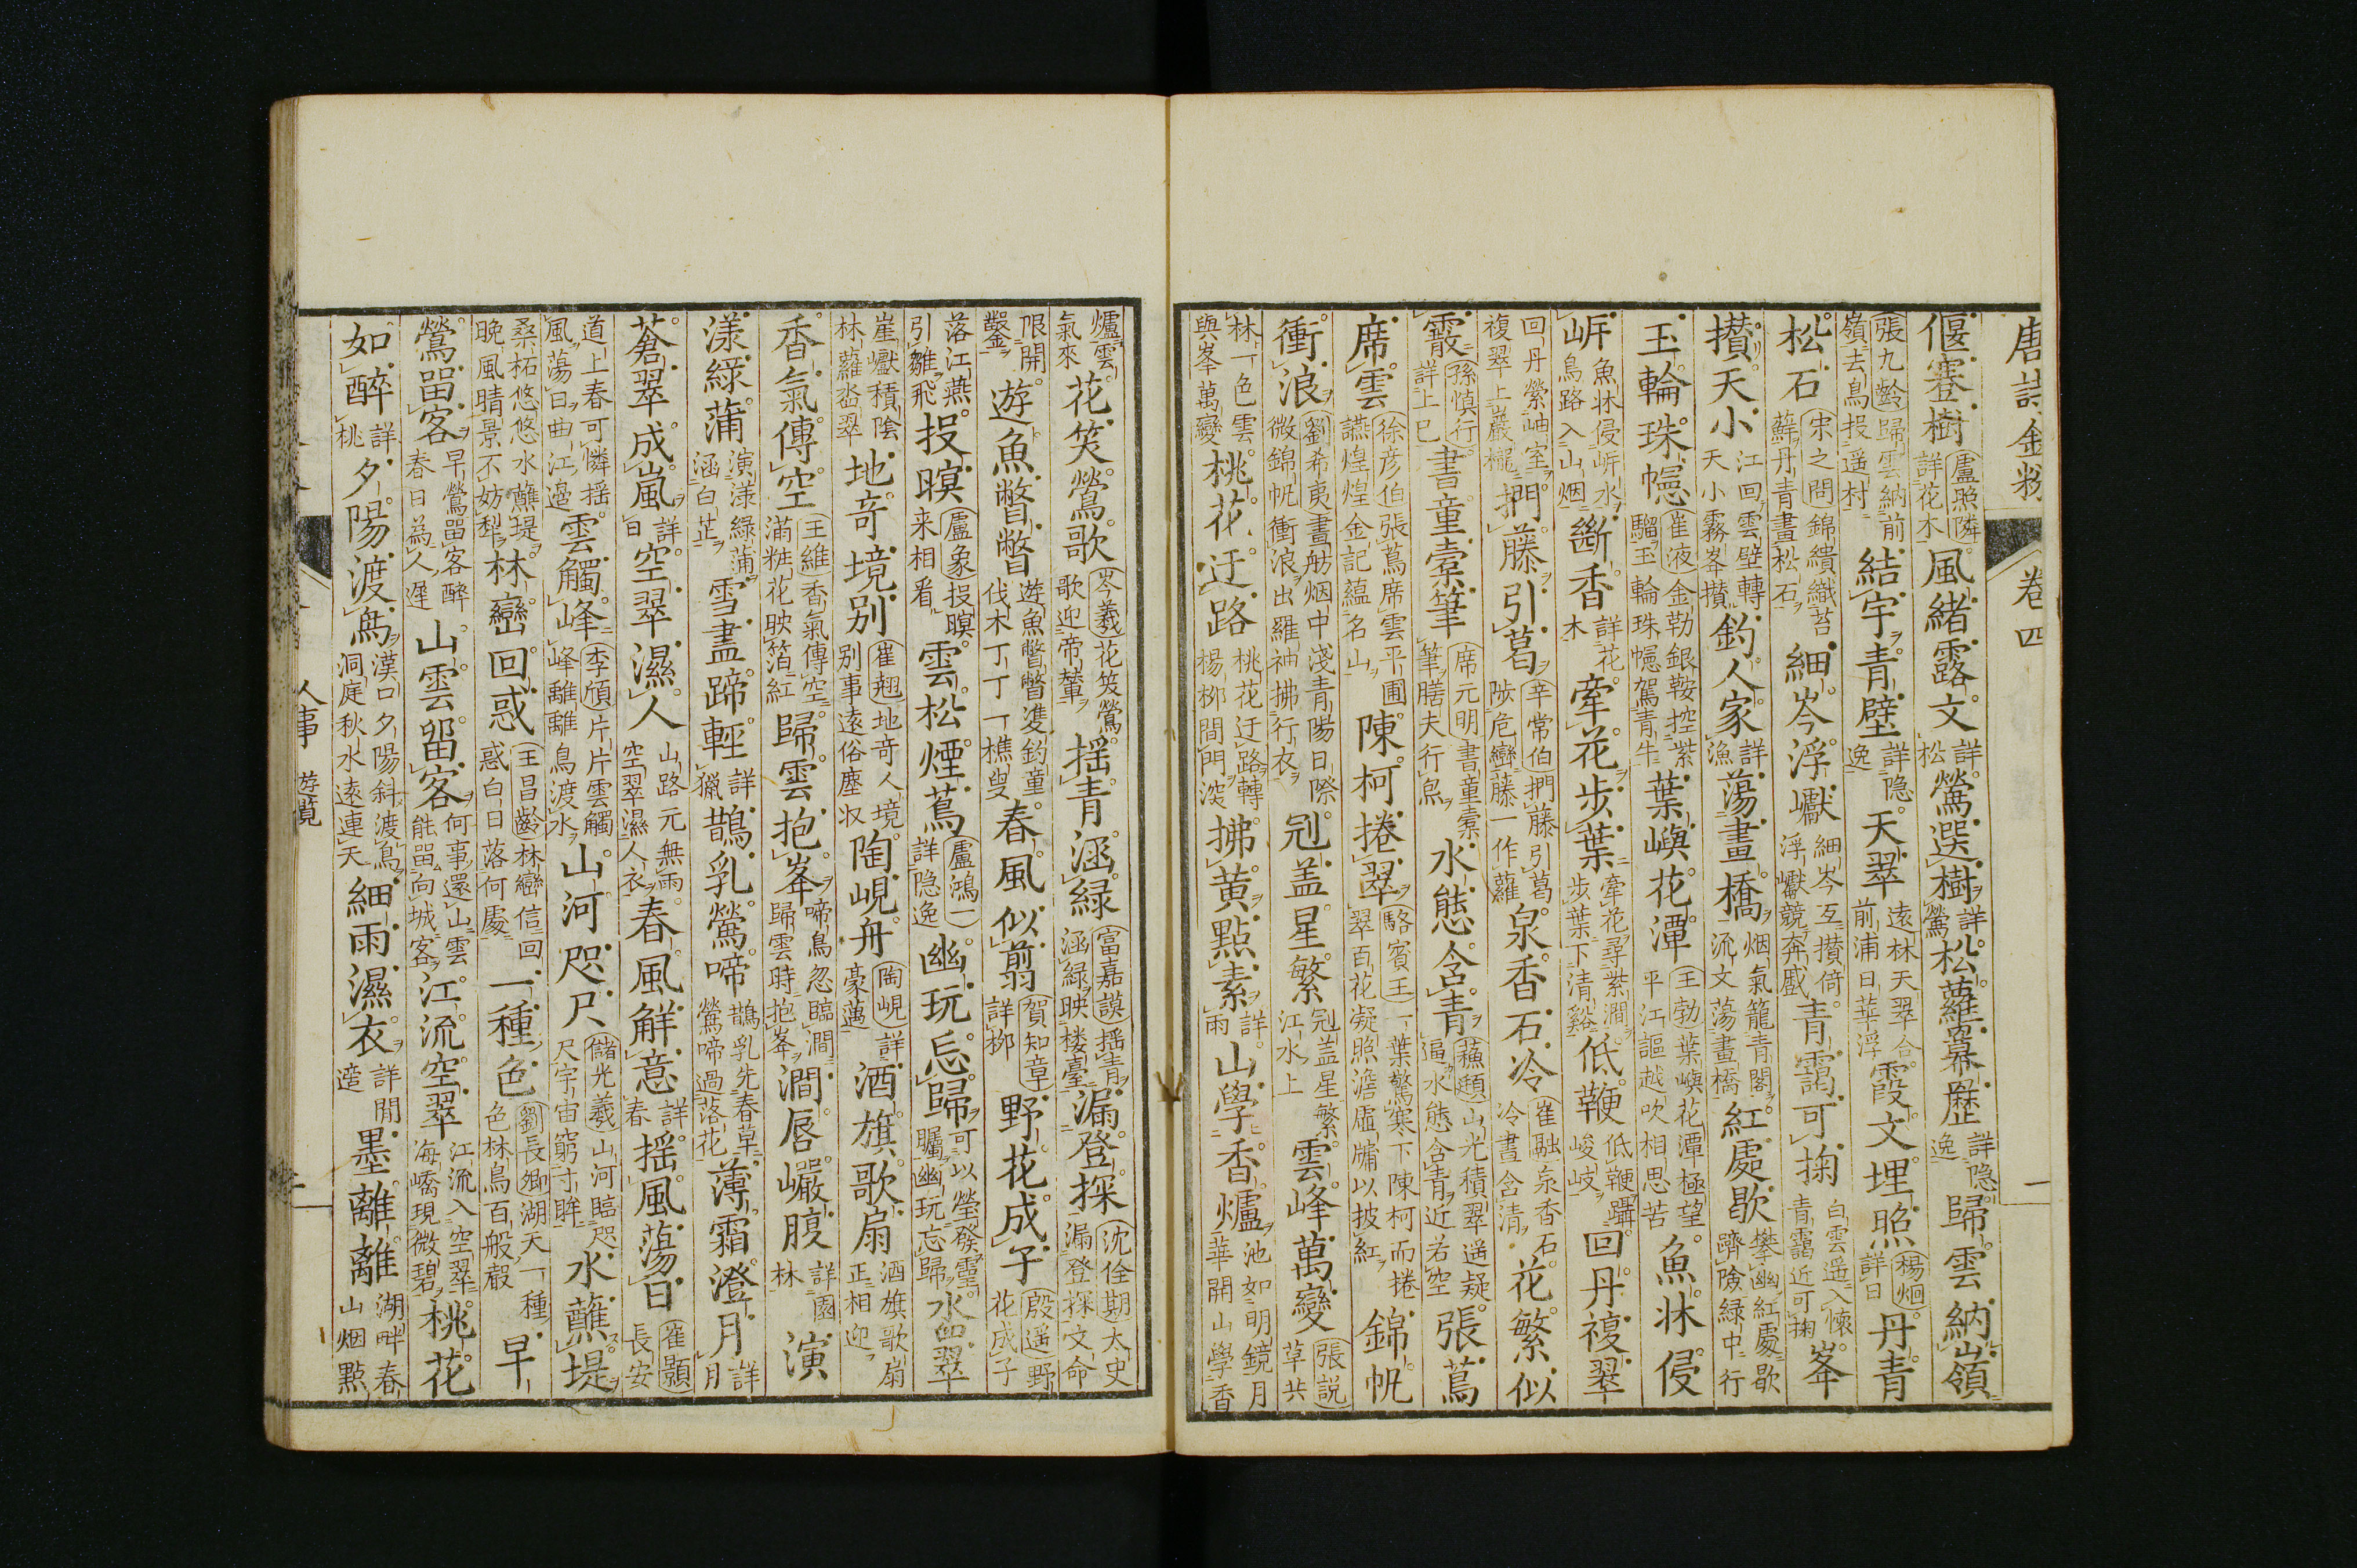 唐詩金粉 卷四 一
偃蹇樹 盧照隣 詳花木 風緒露文 詳松 鶯選樹 詳鶯 松蘿幕歴 詳隐逸 歸雲納嶺
張九齡 歸雲納前嶺去鳥投遥村 結宇青壁 詳隐逸 天翠 遠林天翠合前浦日華浮 霞文埋照 楊烱 詳日 丹青
松石 宋之問 錦繢織苔蘚丹青畫松石 細岑浮巘 細岑互攅倚浮巘競奔蹙 青靄可掬 白雲遥入懐青靄近可掬 峯
攅天小 江回雲壁轉天小霧峯攅 釣人家 詳漁 蕩畫橋 烟氣籠青閣流文蕩畫橋 紅處歇 攀幽紅處歇躋險緑中行
玉輪珠幰 崔液 金勒銀鞍控紫騮玉輪珠幰駕青牛 葉嶼花潭 王勃 葉嶼花潭極望平江謳越吹相思苦 魚牀侵
岍 魚牀侵岍水鳥路入山烟 斷香 詳花木 牽花步葉 牽花尋紫澗步葉下清谿 低鞭 低鞭躡峻岐 回丹複翠
回丹縈岫室複翠上巖櫳 捫藤引葛 辛常伯 捫藤引葛陟危巒藤一作蘿 泉香石冷 崔融 泉香石冷晝含清 花繁似
霰 孫慎行 詳上巳 書童橐筆 席元明 書童橐筆膳夫行魚 水態含青 蘓頲 山光積翠遥疑逼水態含青近若空 張蔦
席雲 徐彦伯 張蔦席雲平圃讌煌煌金記蘊名山 陳柯捲翠 駱賓王 一葉驚寒下陳柯而捲翠百花凝照澹虚牖以披紅 錦帆
衝浪 劉希夷 畫舫烟中淺青陽日際微錦帆衝浪出羅袖拂行衣 冠盖星繁 冠盖星繁江水上 雲峰萬變 張説 草共
林一色雲與峯萬變 桃花迂路 桃花迂路轉楊栁間門深 拂黄點素 詳雨 山學香爐 池如明鏡月華開山學香
爐雲氣來 花笑鶯歌 岑羲 花笑鶯歌迎帝輦 揺青涵緑 富嘉謨 揺青涵緑映楼臺 漏登探 沈佺期 太史漏登探文命
限開鑿 遊魚瞥瞥 遊魚瞥瞥雙釣童伐木丁丁一樵叟 春風似翦 賀知章 詳栁 野花成子 殷遥 野花成子
落江燕引雛飛 投暝 盧象 投暝来相看 雲松煙蔦 盧鴻一 詳隐逸 幽玩忘歸 可以瑩發靈矚幽玩忘歸 水㗊翠
崖巘積隂林蘿沓翠 地奇境别 崔翹 地奇人境别事遠俗塵収 陶峴舟 陶峴 詳豪邁 酒旗歌扇 酒旗歌扇正相迎
香氣傳空 王維 香氣傳空滿粧花映箔紅 歸雲抱峯 啼鳥忽臨澗歸雲時抱峯 澗唇巖腹 詳園林 演
漾緑蒲 演漾緑蒲涵白芷 雪盡蹄輕 詳獵 鵲乳鶯啼 鵲乳先春草鶯啼過落花 薄霜澄月 詳月
蒼翠成嵐 詳日 空翠濕人 山路元無雨空翠濕人衣 春風觧意 詳春 揺風蕩日 崔顥 長安
道上春可憐揺風蕩日曲江邉 雲觸峰 李頎 片片雲觸峰離離鳥渡水 山河咫尺 儲光羲 山河臨咫尺宇宙窮寸眸 水蘸堤
桑柘悠悠水蘸堤晩風晴景不妨犁 林巒回惑 王昌齡 林巒信回惑白日落何處 一種色 劉長卿 湖天一種色林鳥百般聲 早
鶯畱客 早鶯畱客醉春日為人遅 山雲留客 何事還山雲能畱向城客 江流空翠 江流入空翠海嶠現微碧 桃花
如醉 詳桃 夕陽渡鳥 漢口夕陽斜渡鳥洞庭秋水遠連天 細雨濕衣 詳閒遊 墨離離 湖畔春山烟點
人事 遊覧